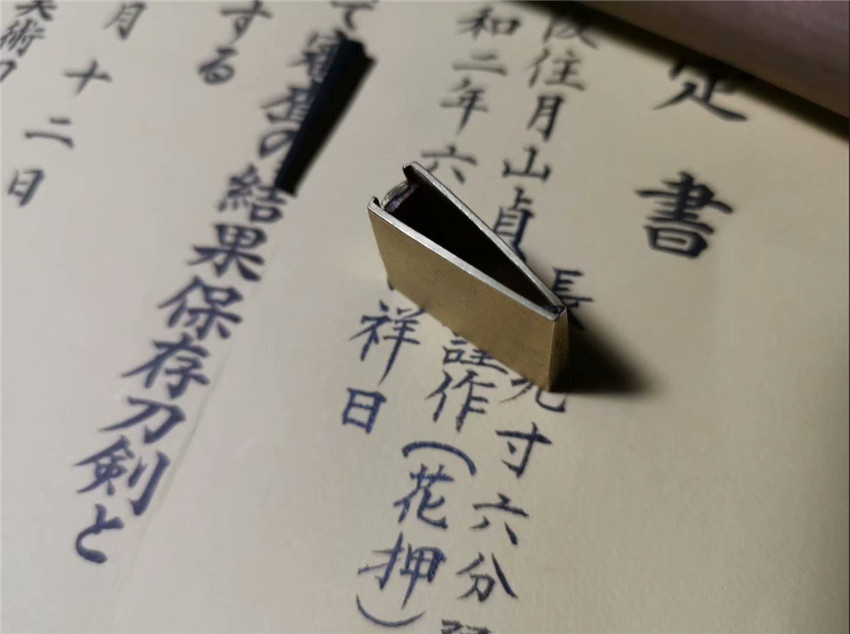 定書
長 九寸六分
阪住月山貞 謹作(花押)
和二年六 祥日
て審査の結果保存刀剣と
する
月十二日
美術刀